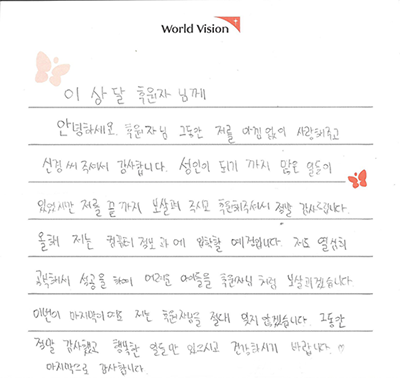 World Vision
이 상 달 후원자 님께
안녕하세요. 후원자 님 그동안 저를 아낌 없이 사랑해주고
신경 써 주셔서 감사합니다. 성인이 되기 까지 많은 일들이
있었지만 저를 끝 까지 보살펴 주시고 후원해주셔서 정말 감사드립니다.
올해 저는 컴퓨터 정보 과에 입학할 예정입니다. 저도 열심히
공부해서 성공을 하여 어려운 이들을 후원자님 처럼 보살피겠습니다.
이번이 마지막이어도 저는 후원자님을 절대 잊지 않겠습니다. 그동안
정말 감사했고 행복한 일들만 있으시고 건강하시기 바랍니다. ♡
마지막으로 감사합니다.